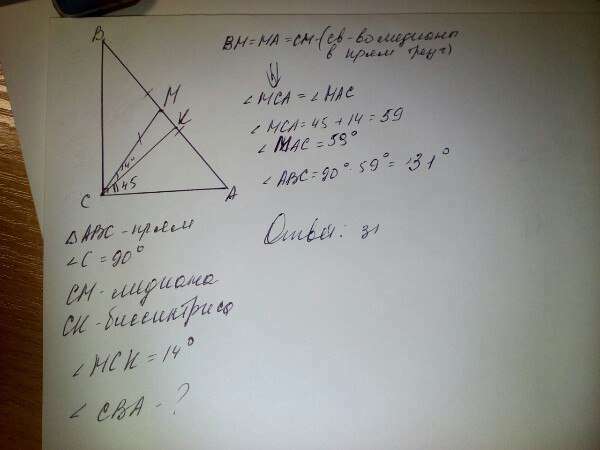 B
M
K
14°
45
C
A
BM=MA=CM-(св-во медианы
в прям треуг)
∠MCA = ∠MAC
∠MCA = 45 + 14 = 59
∠MAC = 59°
∠ABC = 90° - 59° = 31°
Ответ: 31
△ABC - прям
∠C = 90°
CM - медиана
CK - биссинтриса
∠MCK = 14°
∠CBA - ?